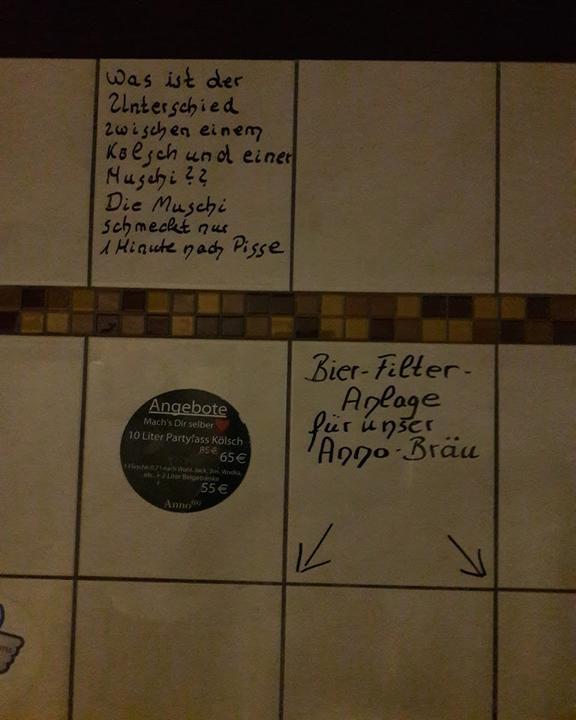 Was ist der
Unterschied
zwischen einem
Kölsch und einer
Muschi??
Die Muschi
schmeckt nur
1 Minute nach Pisse
Bier-Filter-
Anlage
für unser
Anno-Bräu
Angebote
Mach's Dir selber
10 Liter Partyfass Kölsch
85 €
65 €
1 Flasche 0,7 l nach Wahl: Jack, Jim, Wodka,
etc. + 2 Liter Beigetränke
55 €
Anno